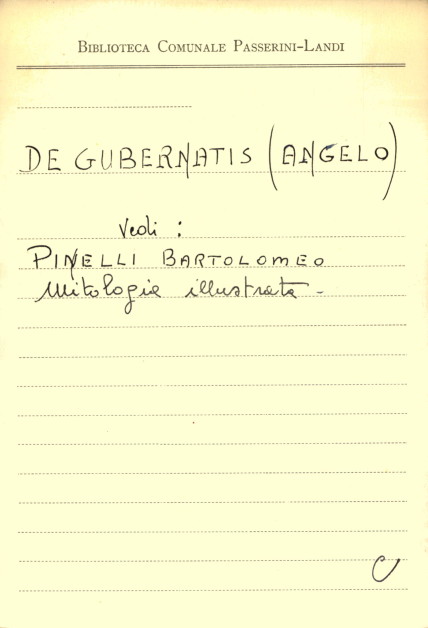 BIBLIOTECA COMUNALE PASSERINI-LANDI
DE GUBERNATIS (ANGELO)
Vedi :
PINELLI BARTOLOMEO
Mitologia illustrata -
C